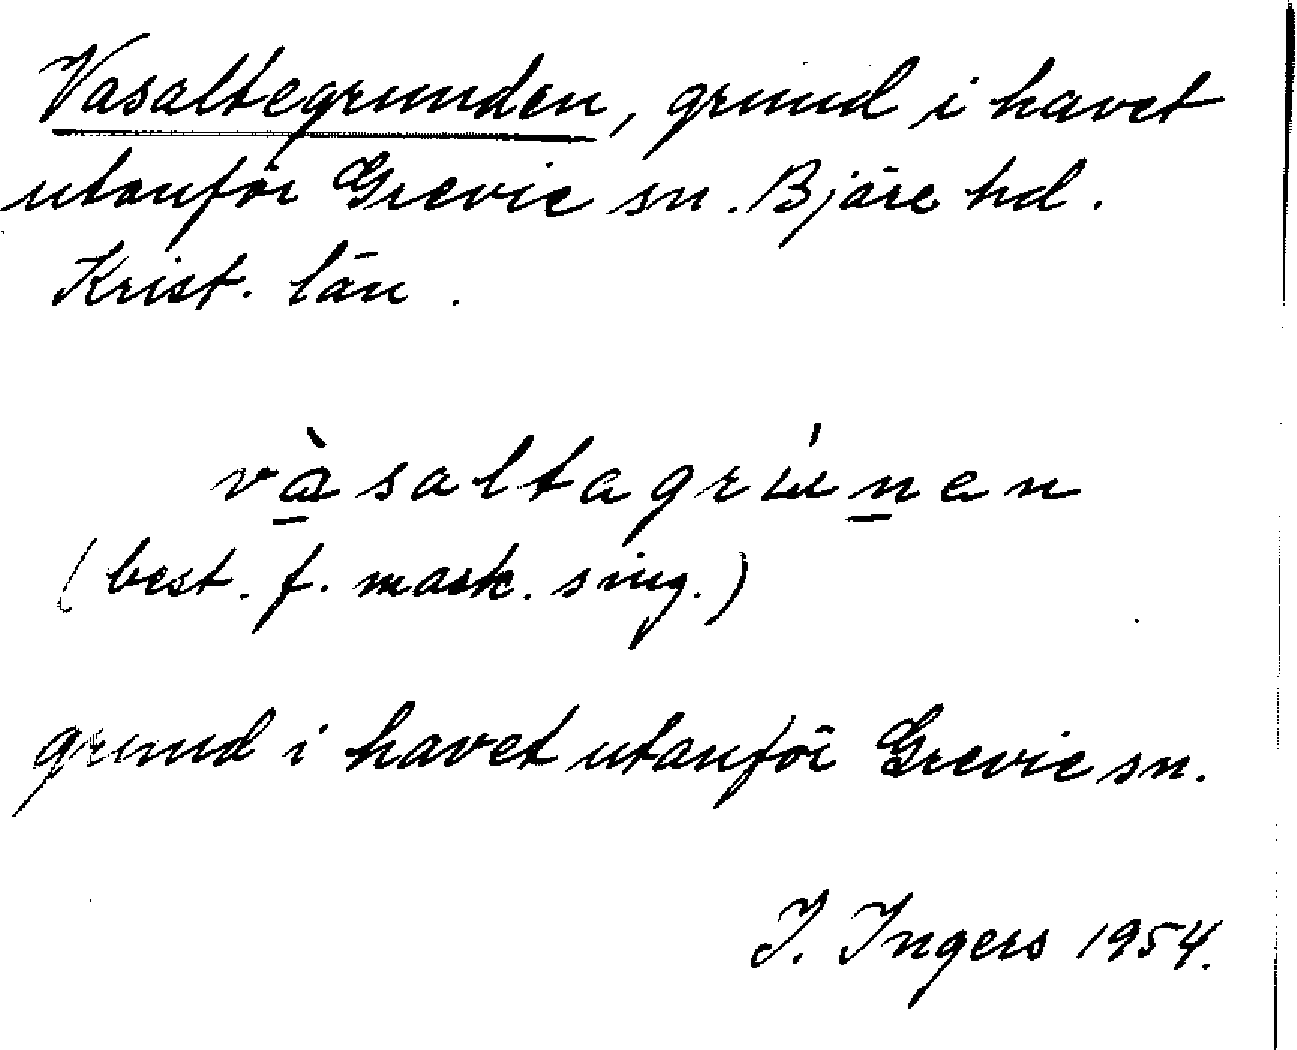 Vasaltegrunden, grund i havet
utanför Grevie sn. Bjäre hd.
Krist. län.
vàsaltagrɯ́nen
(best. f. mask. sing.)
grund i havet utanför Grevie sn.
I. Ingers 1954.